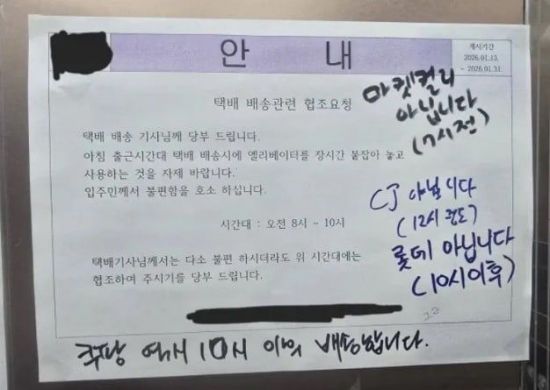 안 내
게시기간
2026.01.15.
~ 2026.01.31.
택배 배송관련 협조요청
택배 배송 기사님께 당부 드립니다.
아침 출근시간대 택배 배송시에 엘리베이터를 장시간 붙잡아 놓고
사용하는 것을 자제 바랍니다.
입주민께서 불편함을 호소 하십니다.
시간대 : 오전 8시 ~ 10시
택배기사님께서는 다소 불편 하시더라도 위 시간대에는
협조하여 주시기를 당부 드립니다.
마켓컬리
아닙니다
(7시전)
CJ 아닙니다
(12시 정도)
롯데 아닙니다
(10시이후)
쿠팡 역시 10시 이후 배송합니다.